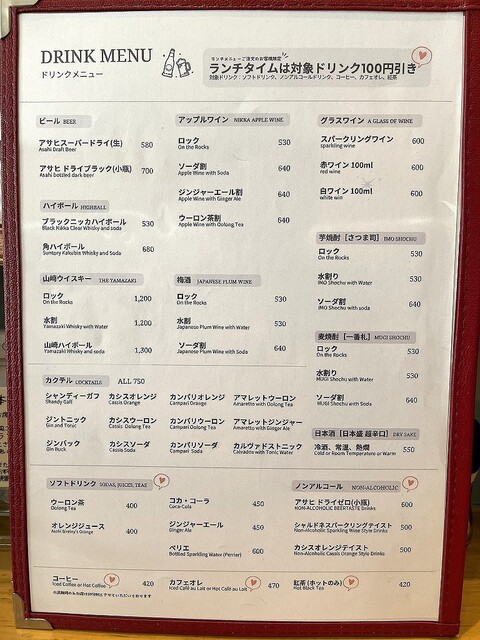 DRINK MENU
ドリンクメニュー
ランチメニューご注文のお客様限定
ランチタイムは対象ドリンク100円引き
対象ドリンク：ソフトドリンク、ノンアルコールドリンク、コーヒー、カフェオレ、紅茶
ビール BEER
アサヒスーパードライ(生) 580
Asahi Draft Beer
アサヒ ドライブラック(小瓶) 700
Asahi bottled dark beer
ハイボール HIGHBALL
ブラックニッカハイボール 530
Black Nikka Clear Whisky and soda
角ハイボール 680
Suntory Kakubin Whisky and Soda
山崎ウイスキー THE YAMAZAKI
ロック 1,200
On the Rocks
水割 1,200
Yamazaki Whisky with Water
山崎ハイボール 1,300
Yamazaki Whisky and soda
アップルワイン NIKKA APPLE WINE
ロック 530
On the Rocks
ソーダ割 640
Apple Wine with Soda
ジンジャーエール割 640
Apple Wine with Ginger Ale
ウーロン茶割 640
Apple Wine with Oolong Tea
梅酒 JAPANESE PLUM WINE
ロック 530
On the Rocks
水割 530
Japanese Plum Wine with Water
ソーダ割 640
Japanese Plum Wine with Soda
グラスワイン A GLASS OF WINE
スパークリングワイン 600
sparkling wine
赤ワイン 100ml 600
red wine
白ワイン 100ml 600
white win
芋焼酎［さつま司］ IMO SHOCHU
ロック 530
On the Rocks
水割り 530
IMO Shochu with Water
ソーダ割 640
IMO Shochu with soda
麦焼酎［一番札］ MUGI SHOCHU
ロック 530
On the Rocks
水割り 530
MUGI Shochu with Water
ソーダ割 640
MUGI Shochu with Soda
日本酒［日本盛 超辛口］ DRY SAKE
冷酒、常温、熱燗 550
Cold or Room Temperature or Warm
カクテル COCKTAILS ALL 750
シャンディーガフ カシスオレンジ カンパリオレンジ アマレットウーロン
Shandy Gaff Cassis Orange Campari Orange Amaretto with Oolong Tea
ジントニック カシスウーロン カンパリウーロン アマレットジンジャー
Gin and Tonic Cassis Oolong Tea Campari Oolong Tea Amaretto with Ginger Ale
ジンバック カシスソーダ カンパリソーダ カルヴァドストニック
Gin Buck Cassis Soda Campari Soda Calvados with Tonic Water
ソフトドリンク SODAS, JUICES, TEAS
ウーロン茶 400
Oolong Tea
オレンジジュース 400
コカ・コーラ 450
Coca-Cola
ジンジャーエール 450
Ginger Ale
ペリエ 600
Bottled Sparkling Water (Perrier)
ノンアルコール NON-ALCOHOLIC
アサヒ ドライゼロ(小瓶) 600
NON-ALCOHOLIC BEERTASTE Drinks
シャルドネスパークリングテイスト 500
Non-Alcoholic Sparkling Wine Style Drinks
カシスオレンジテイスト 500
Non-Alcoholic Cassis Orange Style Drinks
コーヒー 420
Iced Coffee or Hot Coffee
カフェオレ 470
Iced Café au Lait or Hot Café au Lait
紅茶 (ホットのみ) 420
Hot Black Tea